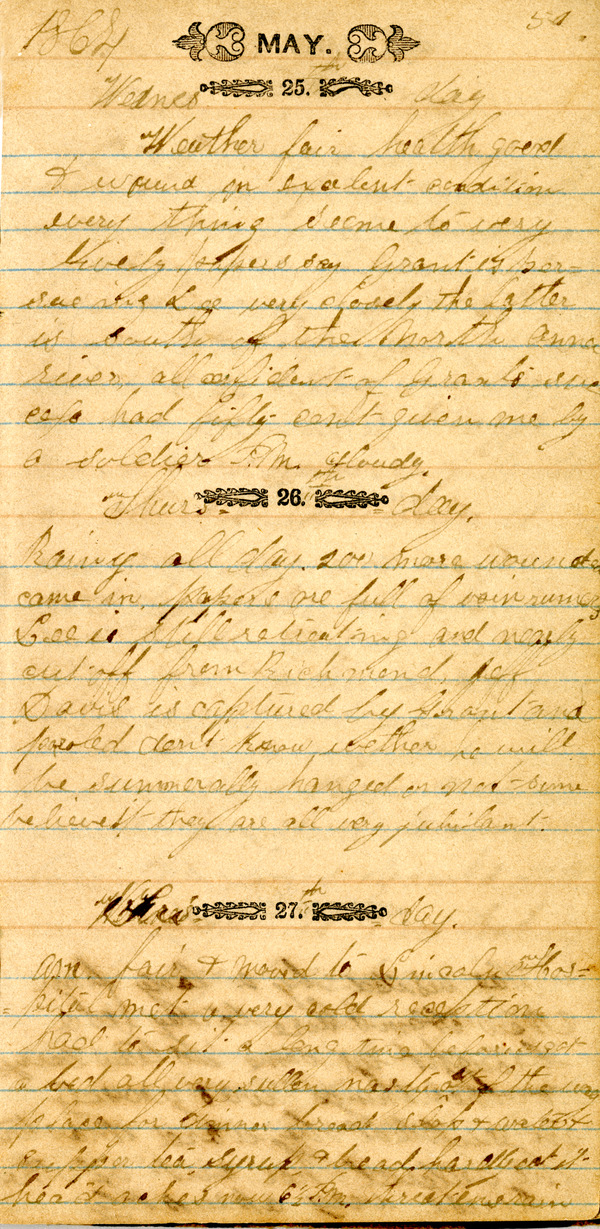 1864 MAY. 51.
Wednes 25.th day
Weather fair health good
& wound on exelent condition
every thing seems to very
lively papers say Grant is per-
sueing Lee very closely the latter
is south of the North Anna
river, all confident of Grants suc
cess had fifty cent given me by
a soldier P.m. cloudy.
Thurs- 26.th day.
Rainy all day. 200 more wounded
came in. papers are full of vain rumers
Lee is still retreating and nearly
cut off from Richmond, Jef
Davis is captured by Grant and
paroled don't know wether he will
be summerally hanged or not some
believe it they are all very jubilant.
27.th day.
am. fair & moved to Lincoln Hos-
pital met a very cold reception
had to sit a long time before I got
a bed all very sullen
place for dinner bread slop & water
supper tea, syrup & bread. hard
head aches now 6½ P.m. threatens rain